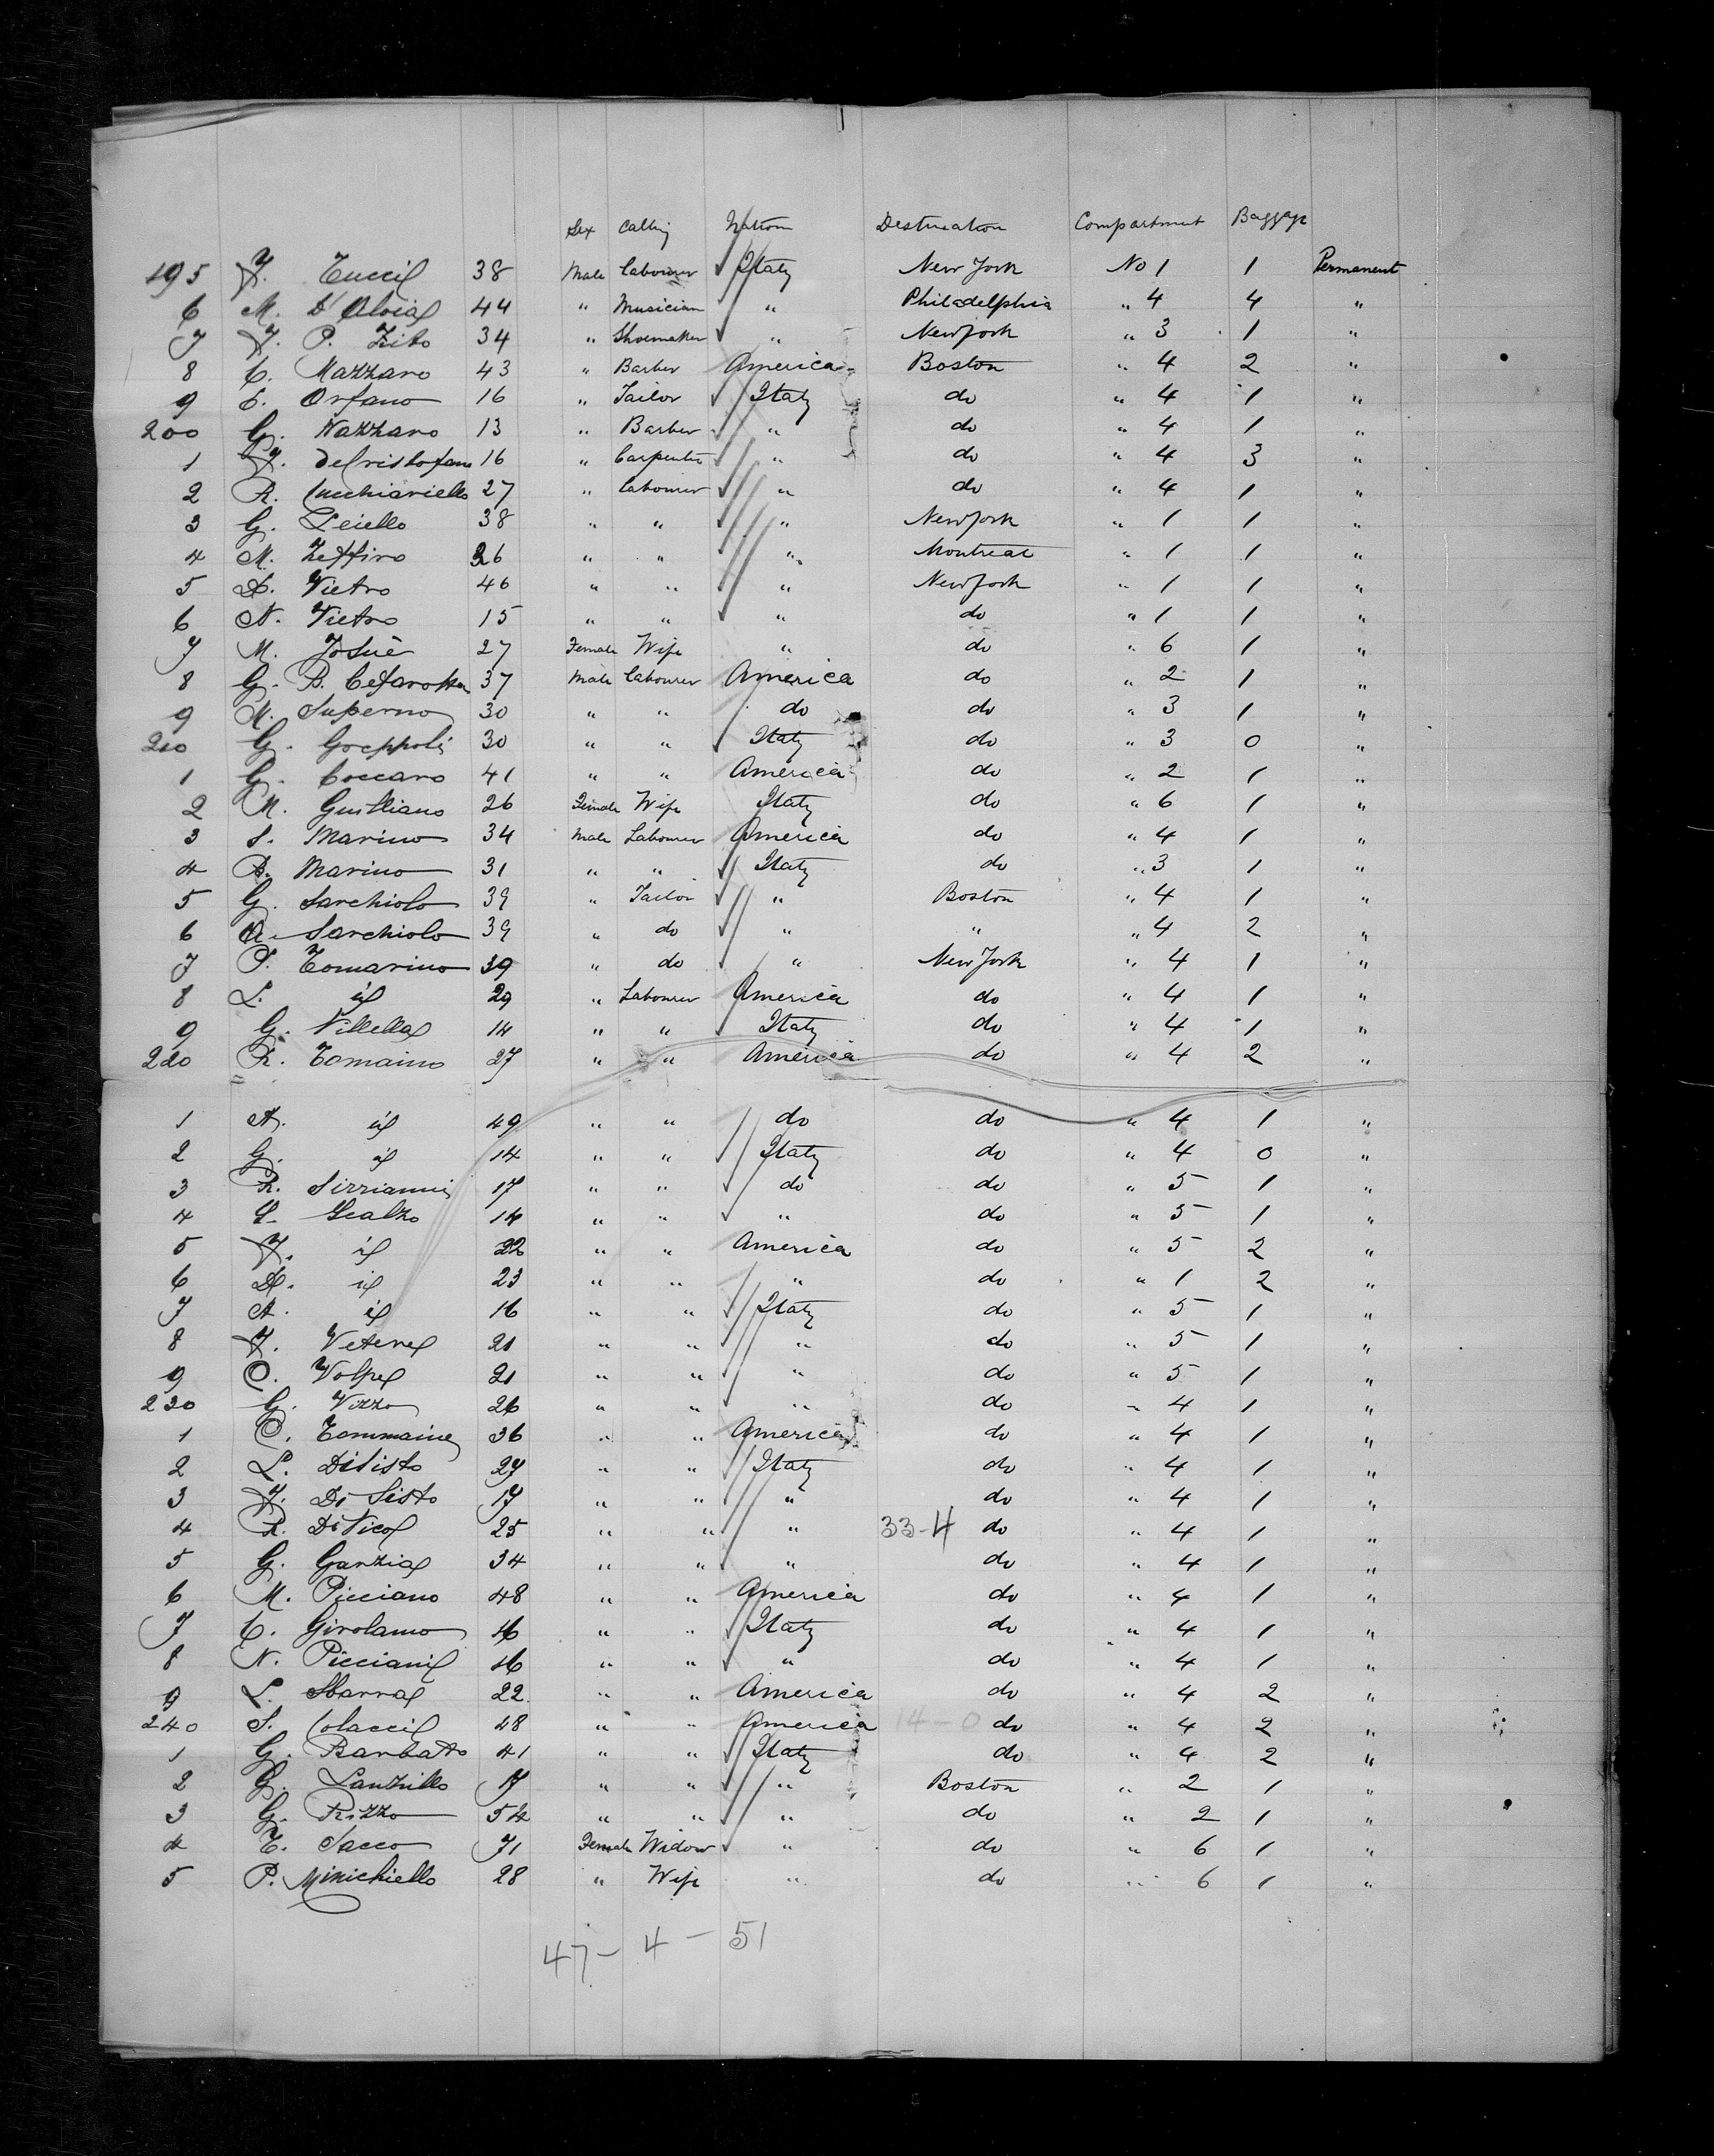 Sex Calling Nation Destination Compartment Baggage
195 F. Tucci 38 Male Labourer Italy New York No 1 1 Permanent
6 M. D'Aloia 44 " Musician " Philadelphia " 4 4 "
7 F. P. Zito 34 " Shoemaker " New York " 3 1 "
8 C. Mazzaro 43 " Barber America Boston " 4 2 "
9 C. Orfano 16 " Tailor Italy do " 4 1 "
200 G. Nazzaro 13 " Barber " do " 4 1 "
1 F. 16 " Carpenter " do " 4 3 "
2 R. 27 " Labourer " do " 4 1 "
3 G. Leiello 38 " " " New York " 1 1 "
4 M. Zeffiro 26 " " " Montreal " 1 1 "
5 D. Vietro 46 " " " New York " 1 1 "
6 N. Vietro 15 " " " do " 1 1 "
7 M. Josuè 27 Female Wife " do " 6 1 "
8 G. B. 37 Male Labourer America do " 2 1 "
9 M. Superno 30 " " do do " 3 1 "
210 G. 30 " " Italy do " 3 0 "
1 G. Coccaro 41 " " America do " 2 1 "
2 M. 26 Female Wife Italy do " 6 1 "
3 S. Marino 34 Male Labourer America do " 4 1 "
4 B. Marino 31 " " Italy do " 3 1 "
5 G. Sarchiolo 39 " Tailor " Boston " 4 1 "
6 A. Sarchiolo 39 " do " " " 4 2 "
7 P. Tomarino 39 " do " New York " 4 1 "
8 L. id 29 " Labourer America do " 4 1 "
9 G. Villella 14 " " Italy do " 4 1 "
220 R. Tomaino 27 " " America do " 4 2 "
1 A. id 49 " " do do " 4 1 "
2 G. id 14 " " Italy do " 4 0 "
3 R. Sirrianni 17 " " do do " 5 1 "
4 S. Scalzo 14 " " " do " 5 1 "
5 F. id 22 " " America do " 5 2 "
6 D. id 23 " " " do " 1 2 "
7 A. id 16 " " Italy do " 5 1 "
8 F. Vetere 21 " " " do " 5 1 "
9 O. Volpe 21 " " " do " 5 1 "
230 G. Vizzo 26 " " " do " 4 1 "
1 C. Tommaine 36 " " America do " 4 1 "
2 L. DiSisto 27 " " Italy do " 4 1 "
3 F. Di Sisto 17 " " " do " 4 1 "
4 R. DiNico 25 " " " 33-4 do " 4 1 "
5 G. Garzia 34 " " " do " 4 1 "
6 M. Picciano 48 " " America do " 4 1 "
7 C. Girolamo 16 " " Italy do " 4 1 "
8 N. Picciani 16 " " " do " 4 1 "
9 L. Sbarra 22 " " America do " 4 2 "
240 S. Colacci 48 " " America 14-0 do " 4 2 "
1 G. Barbatto 41 " " Italy do " 4 2 "
2 G. Lanzillo 17 " " " Boston " 2 1 "
3 G. Rizzo 54 " " " do " 2 1 "
4 T. Sacco 71 Female Widow " do " 6 1 "
5 P. Minichiello 28 " Wife " do " 6 1 "
47 - 4 - 51